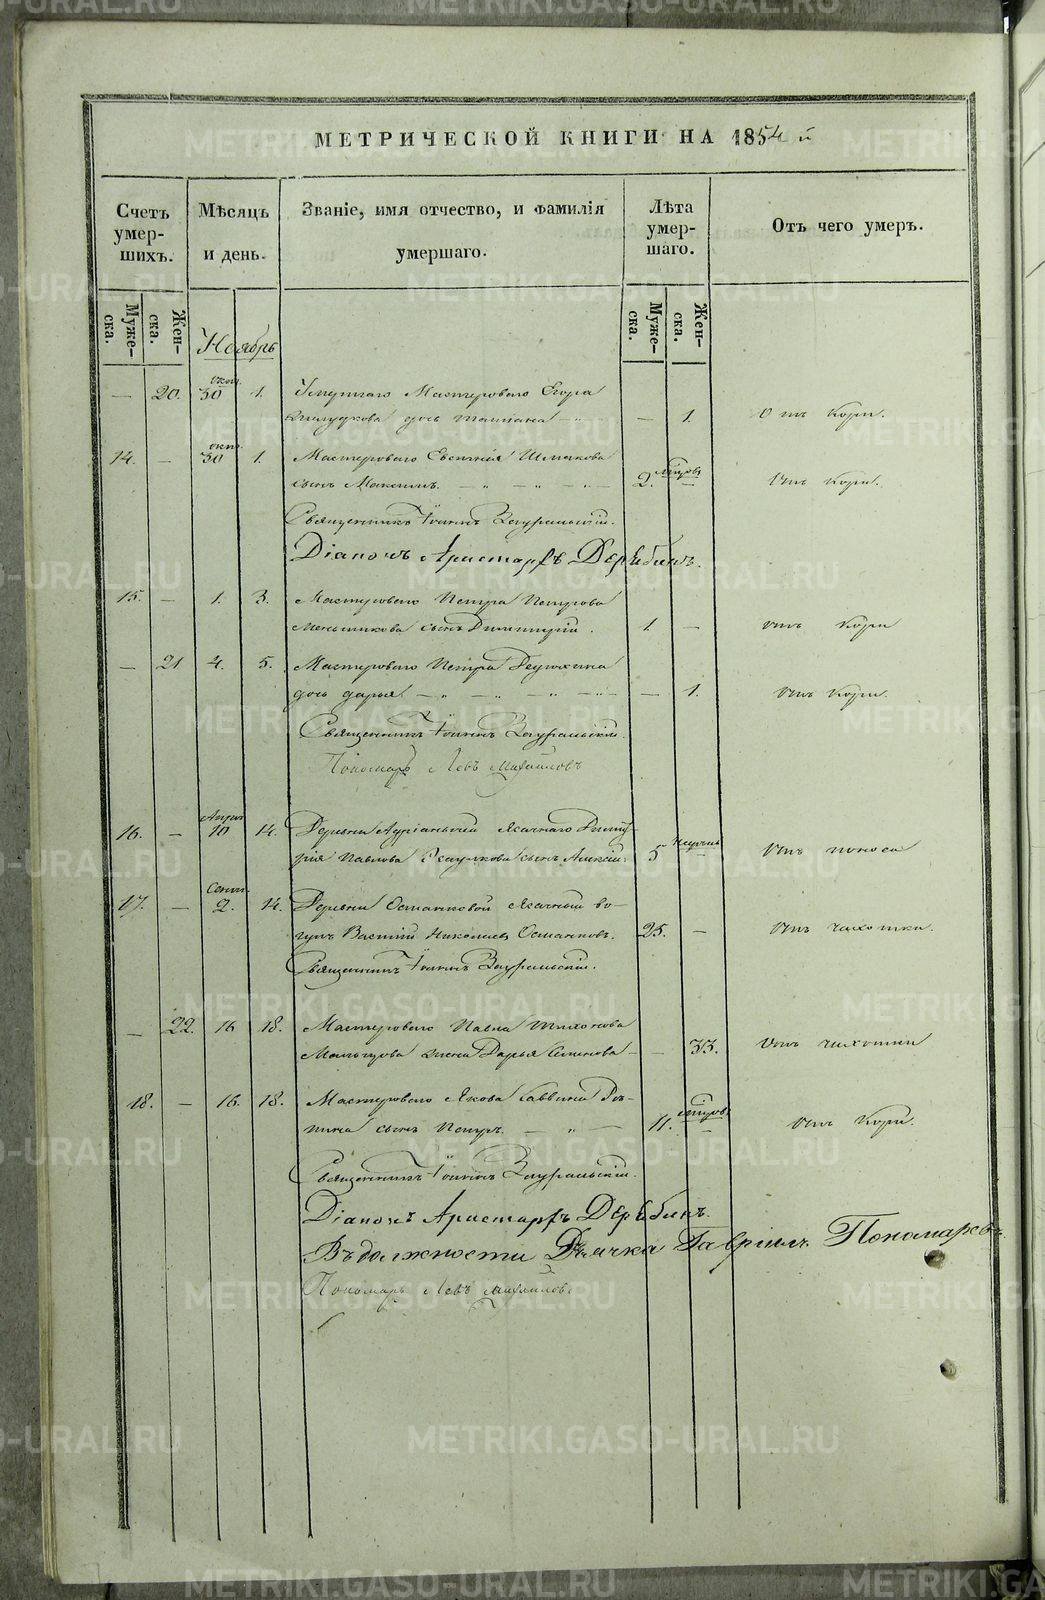 МЕТРИЧЕСКОЙ КНИГИ НА 1854 й
Счетъ умер- шихъ.
Мѣсяцъ и день.
Званіе, имя отчество, и фамилія умершаго.
Лѣта умер- шаго.
Отъ чего умеръ.
Муже- ска.
Жен- ска.
Муже- ска.
Жен- ска.
Ноябрь
— 20. окт. 30 1. Мастероваго Егора
дочь Татіана — 1. Отъ кори.
14. — окт. 30 1. Мастероваго Евгенія
сынъ Максимъ. 2. мѣсяц. — Отъ кори.
Священникъ Іоаннъ Зауральскій.
Діаконъ Аристархъ Дерябинъ.
15. — 1. 3. Мастероваго Петра Петрова
Меньшикова сынъ Димитрій. 1. — отъ кори
— 21 4. 5. Мастероваго Петра
дочь Дарья — 1. отъ кори.
Священникъ Іоаннъ Зауральскій.
Пономарь Левъ Михайловъ
16. — 10 14. Деревни ясачнаго Дмит-
рія Павлова сынъ Алексій. 5 — Отъ поноса
17. — Сент. 2. 14. Деревни Османковой ясачный во-
гулъ Василій Николаевъ Османковъ. 25. — Отъ чахотки.
Священникъ Іоаннъ Зауральскій.
— 22. 16 18. Мастероваго Павла Тихонова
Мальцова жена Дарья Семенова — 33. Отъ чахотки
18. — 16. 18. Мастероваго Якова Саввина
сынъ Петръ. 11. мѣсяц. — Отъ кори.
Священникъ Іоаннъ Зауральскій.
Діаконъ Аристархъ Дерябинъ.
Въ должности Дьячка Гавріилъ Пономаревъ
Пономарь Левъ Михайловъ
METRIKI.GASO-URAL.RU